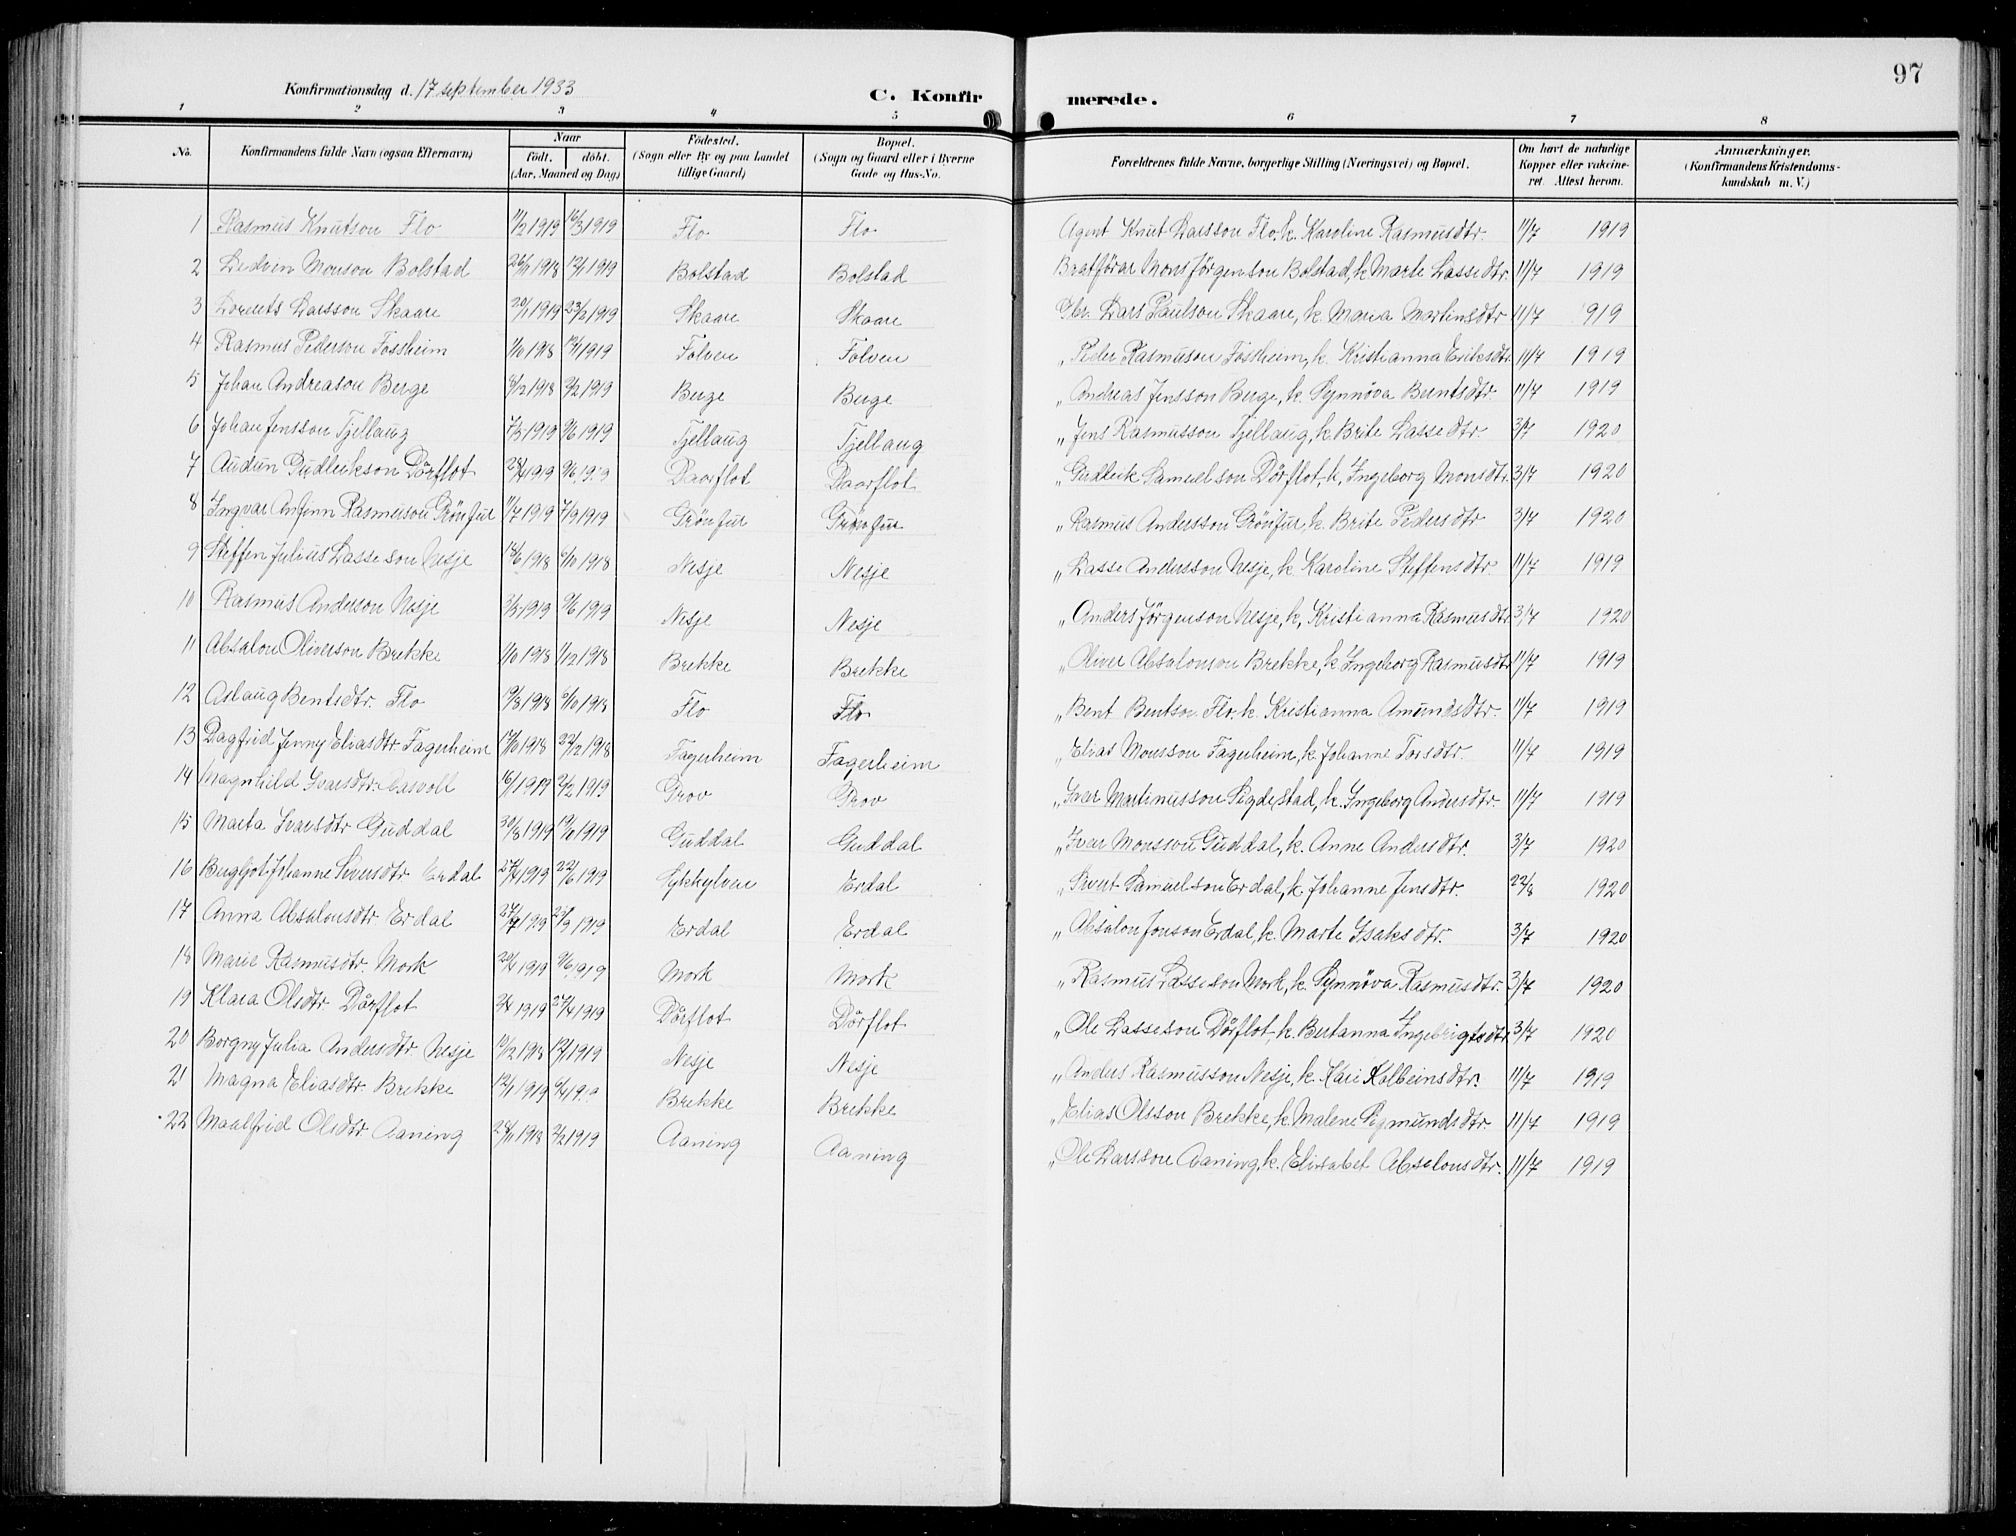 97
Konfirmationsdag d. 17 september 1933
C. Konfirmerede.
1 2 3 4 5 6 7 8
No. Konfirmandens fulde Navn (ogsaa Efternavn) Naar født. døbt. (Aar, Maaned og Dag) Fødested. (Sogn eller By og paa Landet tillige Gaard) Bopæl. (Sogn og Gaard eller i Byerne Gade og Hus-No. Forældrenes fulde Navne, borgerlige Stilling (Næringsvei) og Bopæl. Om havt de naturlige Kopper eller vakcineret. Attest herom. Anmærkninger. (Konfirmandens Kristendomskundskab m. V.)
1 Rasmus Knutson Flo 11/2 1919 16/3 1919 Flo Flo Agent Knut Larsson Flo, k. Karoline Rasmusdtr. 11/7 1919
2 Ledvin Monson Bolstad 26/11 1918 12/1 1919 Bolstad Bolstad Bratförar Mons Jörgenson Bolstad, k. Marte Lassedtr. 11/7 1919
3 Lorents Larsson Skaare 20/1 1919 23/2 1919 Skaare Skaare Gbr. Lars Paulson Skaare, k. Maria Martinsdtr 11/7 919
4 Rasmus Pederson Fossheim 1/10 1918 12/1 1919 Folven Folven " Peder Rasmuson Fossheim, k. Kristianna Eriksdtr 11/7 1919
5 Johan Andreason Berge 8/12 1918 2/2 1919 Berge Berge " Andreas Jensson Berge, k. Synnöva Bentsdtr. 11/7 1919
6 Johan Jensson Tjellaug 7/3 1919 9/6 1919 Tjellaug Tjellaug " Jens Rasmusson Tjellaug, k. Brite Lassedtr. 3/7 1920
7 Audun Gudleikson Dörflot 28/4 1919 9/6 1919 Daarflot Daarflot " Gudleik Samuelson Dörflot, k. Ingeborg Monsdtr. 3/7 1920
8 Ingvar Anfinn Rasmuson Grönfur 11/7 1919 7/9 1919 Grönfur Grönfur " Rasmus Andersson Grönfur, k. Brite Pedersdtr 3/7 1920
9 Steffen Julius Lasseson Nesje 18/6 1918 6/10 1918 Nesje Nesje " Lasse Andersson Nesje, k. Karoline Steffensdtr. 11/7 1919
10 Rasmus Anderson Nesje 3/3 1919 9/6 1919 Nesje Nesje " Anders Jörgenson Nesje, k. Kristianna Rasmusdtr 3/7 1920
11 Absalon Oliverson Brekke 1/10 1918 1/12 1918 Brekke Brekke " Oliver Absalonson Brekke, k. Ingeborg Rasmusdtr 11/7 1919
12 Aslaug Bentsdtr. Flo 19/8 1918 6/10 1918 Flo Flo " Bent Bentson Flo, k. Kristianna Amundsdtr. 11/7 1919
13 Dagfrid Jenny Eliasdtr. Fagerheim 17/10 1918 22/12 1918 Fagerheim Fagerheim " Elias Monsson Fagerheim, k. Johanne Torsdtr. 11/7 1919
14 Magnhild Ivarsdtr. Aasvoll 16/1 1919 2/2 1919 Prov Prov " Ivar Martinusson Sigdestad, k. Ingeborg Andersdtr. 11/7 1919
15 Marta Ivarsdtr Guddal 30/8 1919 19/10 1919 Guddal Guddal " Ivar Monsson Guddal, k. Anne Andersdtr. 3/7 1920
16 Bergljot Johanne Siversdtr Erdal 27/4 1919 22/6 1919 Sykkylven Erdal " Sivert Samuelson Erdal, k. Johanne Jensdtr. 22/8 1920
17 Anna Absalonsdtr Erdal 27/7 1919 21/9 1919 Erdal Erdal " Absalon Jonson Erdal, k. Marte Isaksdtr. 3/7 1920
18 Marie Rasmusdtr. Mork 20/4 1919 9/6 1919 Mork Mork " Rasmus Lasseson Mork, k. Synnöva Rasmusdtr. 3/7 1920
19 Klara Olsdtr. Dörflot 2/4 1919 27/4 1919 Dörflot Dörflot " Ole Lasseson Dörflot, k. Bertanna Ingebrigtsdtr 3/7 1920
20 Borgny Julia Andersdtr Nesje 10/12 1918 12/1 1919 Nesje Nesje " Anders Rasmusson Nesje, k. Kari Kolbeinsdtr. 11/7 1919
21 Magna Eliasdtr. Brekke 12/1 1919 6/4 1919 Brekke Brekke " Elias Olsson Brekke, k. Malene Sigmundsdtr. 11/7 1919
22 Maalfrid Olsdtr Aaning 28/11 1918 2/2 1919 Aaning Aaning " Ole Larsson Aaning, k. Elisabet Absalonsdtr. 11/7 1919